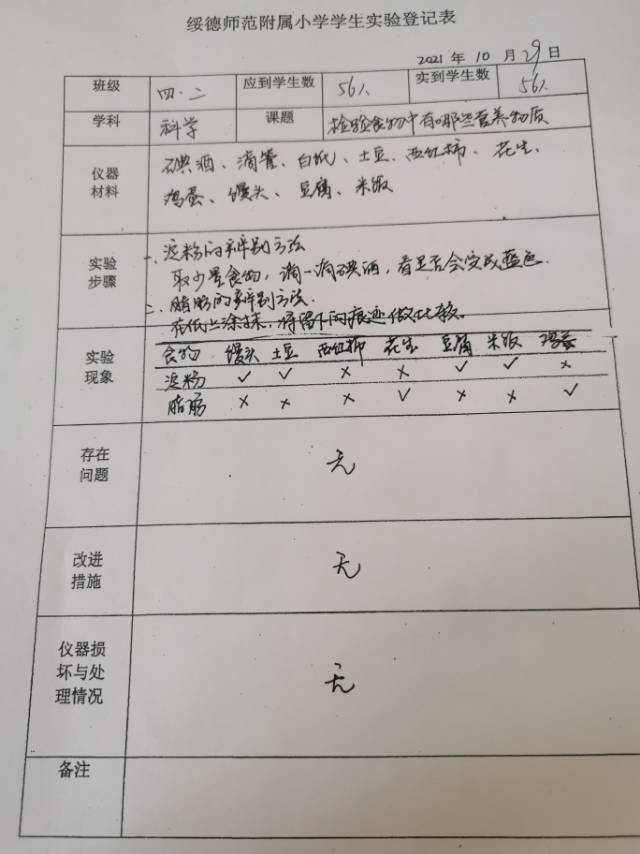 绥德师范附属小学学生实验登记表
2021 年 10 月 29 日
班级 四·二 应到学生数 56人 实到学生数 56人
学科 科学 课题 检验食物中有哪些营养物质
仪器材料 碘酒、滴管、白纸、土豆、西红柿、花生、
鸡蛋、馒头、豆腐、米饭
实验步骤 一、淀粉的辨别方法
取少量食物,滴一滴碘酒,看是否会变成蓝色.
二、脂肪的辨别方法.
在纸上涂抹,将留下的痕迹做比较。
实验现象 食物 馒头 土豆 西红柿 花生 豆腐 米饭 鸡蛋
淀粉 ✓ ✓ × × ✓ ✓ ×
脂肪 × × × ✓ × × ✓
存在问题 无
改进措施 无
仪器损坏与处理情况 无
备注